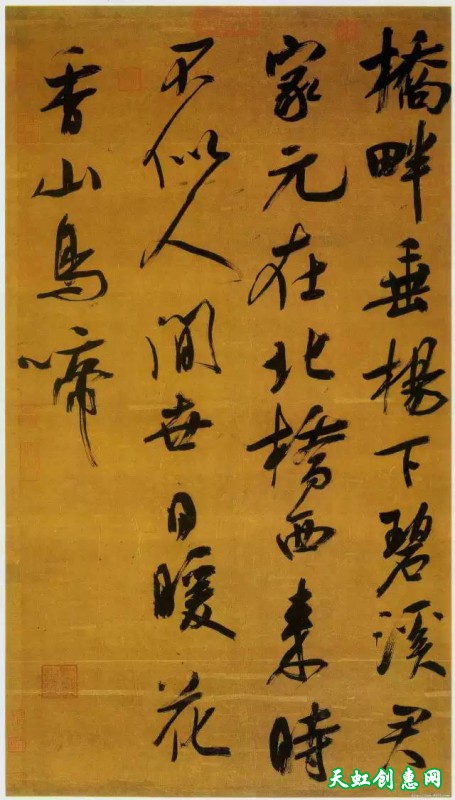 橋畔垂楊下碧溪君
家元在北橋西来時
不似人間世日暖花
香山鳥啼
天虹创惠网